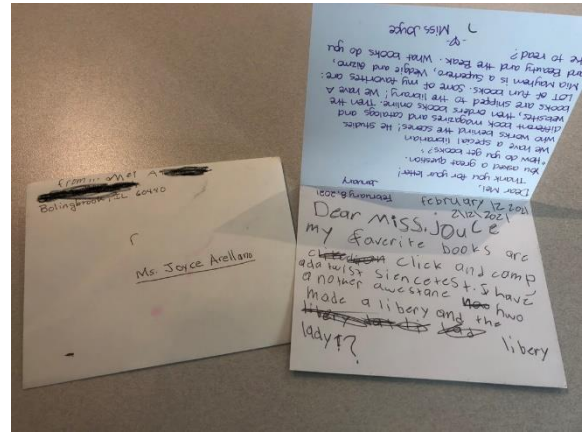 from... Mel A
Bolingbrook, IL 60440
Ms. Joyce Arellano
February 8, 2021
January
Dear Mel,
Thank you for your letter!
You asked a great question.
"How do you get books?"
We have a special librarian
who works behind the scenes! He studies
different book magazines and catalogs and
websites, then orders books online. Then the
books are shipped to the library! We have A
LOT of fun books. Some of my favorites are:
Mia Mayhem is a Superhero, Wedgie and Gizmo,
and Beauty and the Beak. What books do you
like to read?
Miss Joyce
February 12 2021
Dear Miss, Joyce
my favorite books are
click and camp
ada twist siencetest. I have
a nother awestane huwo
made a libery and the
libery
lady!?